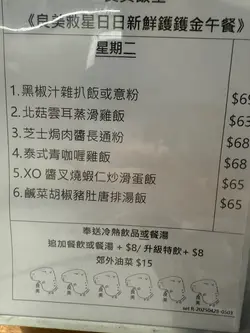 《良美救星日日新鮮鑊鑊金午餐》
星期二
1. 黑椒汁雜扒飯或意粉 $69
2. 北菇雲耳蒸滑雞飯 $68
3. 芝士焗肉醬長通粉 $63
4. 泰式青咖喱雞飯 $68
5. XO 醬叉燒蝦仁炒滑蛋飯 $65
6. 鹹菜胡椒豬肚唐排湯飯 $68
奉送冷熱飲品或餐湯
追加餐飲或餐湯 + $8/ 升級特飲 + $8
郊外油菜 $15